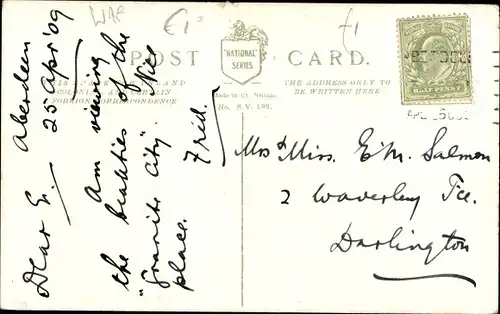 WAF
£1
£1
POST CARD.
"NATIONAL"
SERIES
Made in Gt. Britain.
No. S.V. 192.
THE ADDRESS ONLY TO
BE WRITTEN HERE
FOREIGN CORRESPONDENCE
HALF PENNY
Aberdeen
25 Apr '09
Dear E.
Am viewing
the beauties of the
"Granite City". Nice
place.
Fred.
Mrs & Miss. E. M. Salmon
2 Waverley Tce.
Darlington